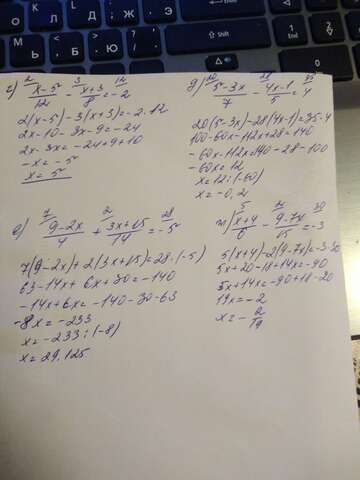 г) x-5/12 - x+3/8 = -2
2(x-5)-3(x+3)=-2·12
2x-10-3x-9=-24
2x-3x=-24+9+10
-x=-5
x=5
д) 5-3x/7 - 4x-1/5 = 4
20(5-3x)-28(4x-1)=35·4
100-60x-112x+28=140
-60x-112x=140-28-100
-60x=12
x=12:(-60)
x=-0,2
е) 9-2x/4 + 3x+15/14 = -5
7(9-2x)+2(3x+15)=28·(-5)
63-14x+6x+30=-140
-14x+6x=-140-30-63
-8x=-233
x=-233:(-8)
x=29,125
ж) x+4/6 - 9-7x/15 = -3
5(x+4)-2(9-7x)=-3·30
5x+20-18+14x=-90
5x+14x=-90+18-20
19x=-2
x=-2/19